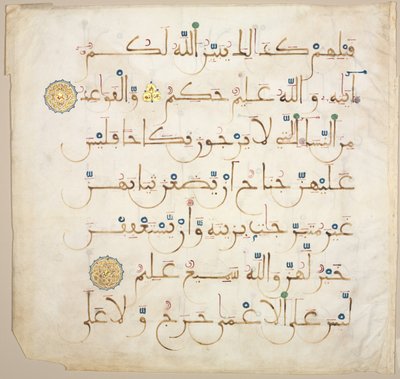 قبلهم كذلك يبين الله لكم
ءايته والله عليم حكيم والقوعد
من النساء التي لا يرجون نكاحا فليس
عليهن جناح أن يضعن ثيابهن
غير متبرجت بزينة وأن يستعففن
خير لهن والله سميع عليم
ليس على الأعمى حرج ولا على